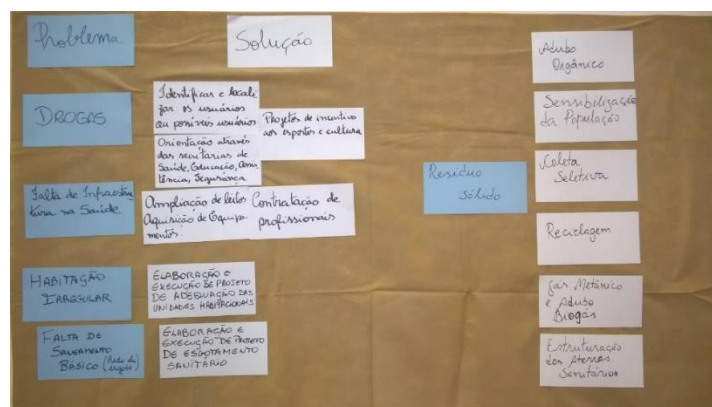 Problema
Solução
DROGAS
Identificar e locali
zar os usuários
ou possíveis usuários
Orientação através
das secretarias de
Saúde, Educação, Assis
tência, Segurança
Projetos de incentivo
aos esportes e cultura
Falta de Infraestru
tura na Saúde
Ampliação de leitos
Aquisição de Equipa-
mentos.
Contratação de
profissionais
HABITAÇÃO
IRREGULAR
ELABORAÇÃO E
EXECUÇÃO DE PROJETO
DE ADEQUAÇÃO DAS
UNIDADES HABITACIONAIS
FALTA DE
SANEAMENTO
BÁSICO (Rede de
esgoto)
ELABORAÇÃO E
EXECUÇÃO DE PROJETO
DE ESGOTAMENTO
SANITÁRIO
Resíduo
Sólido
Adubo
Orgânico
Sensibilização
da População
Coleta
Seletiva
Reciclagem
Gás Metânico
e Adubo
Biogás
Estruturação
dos Aterros
Sanitários